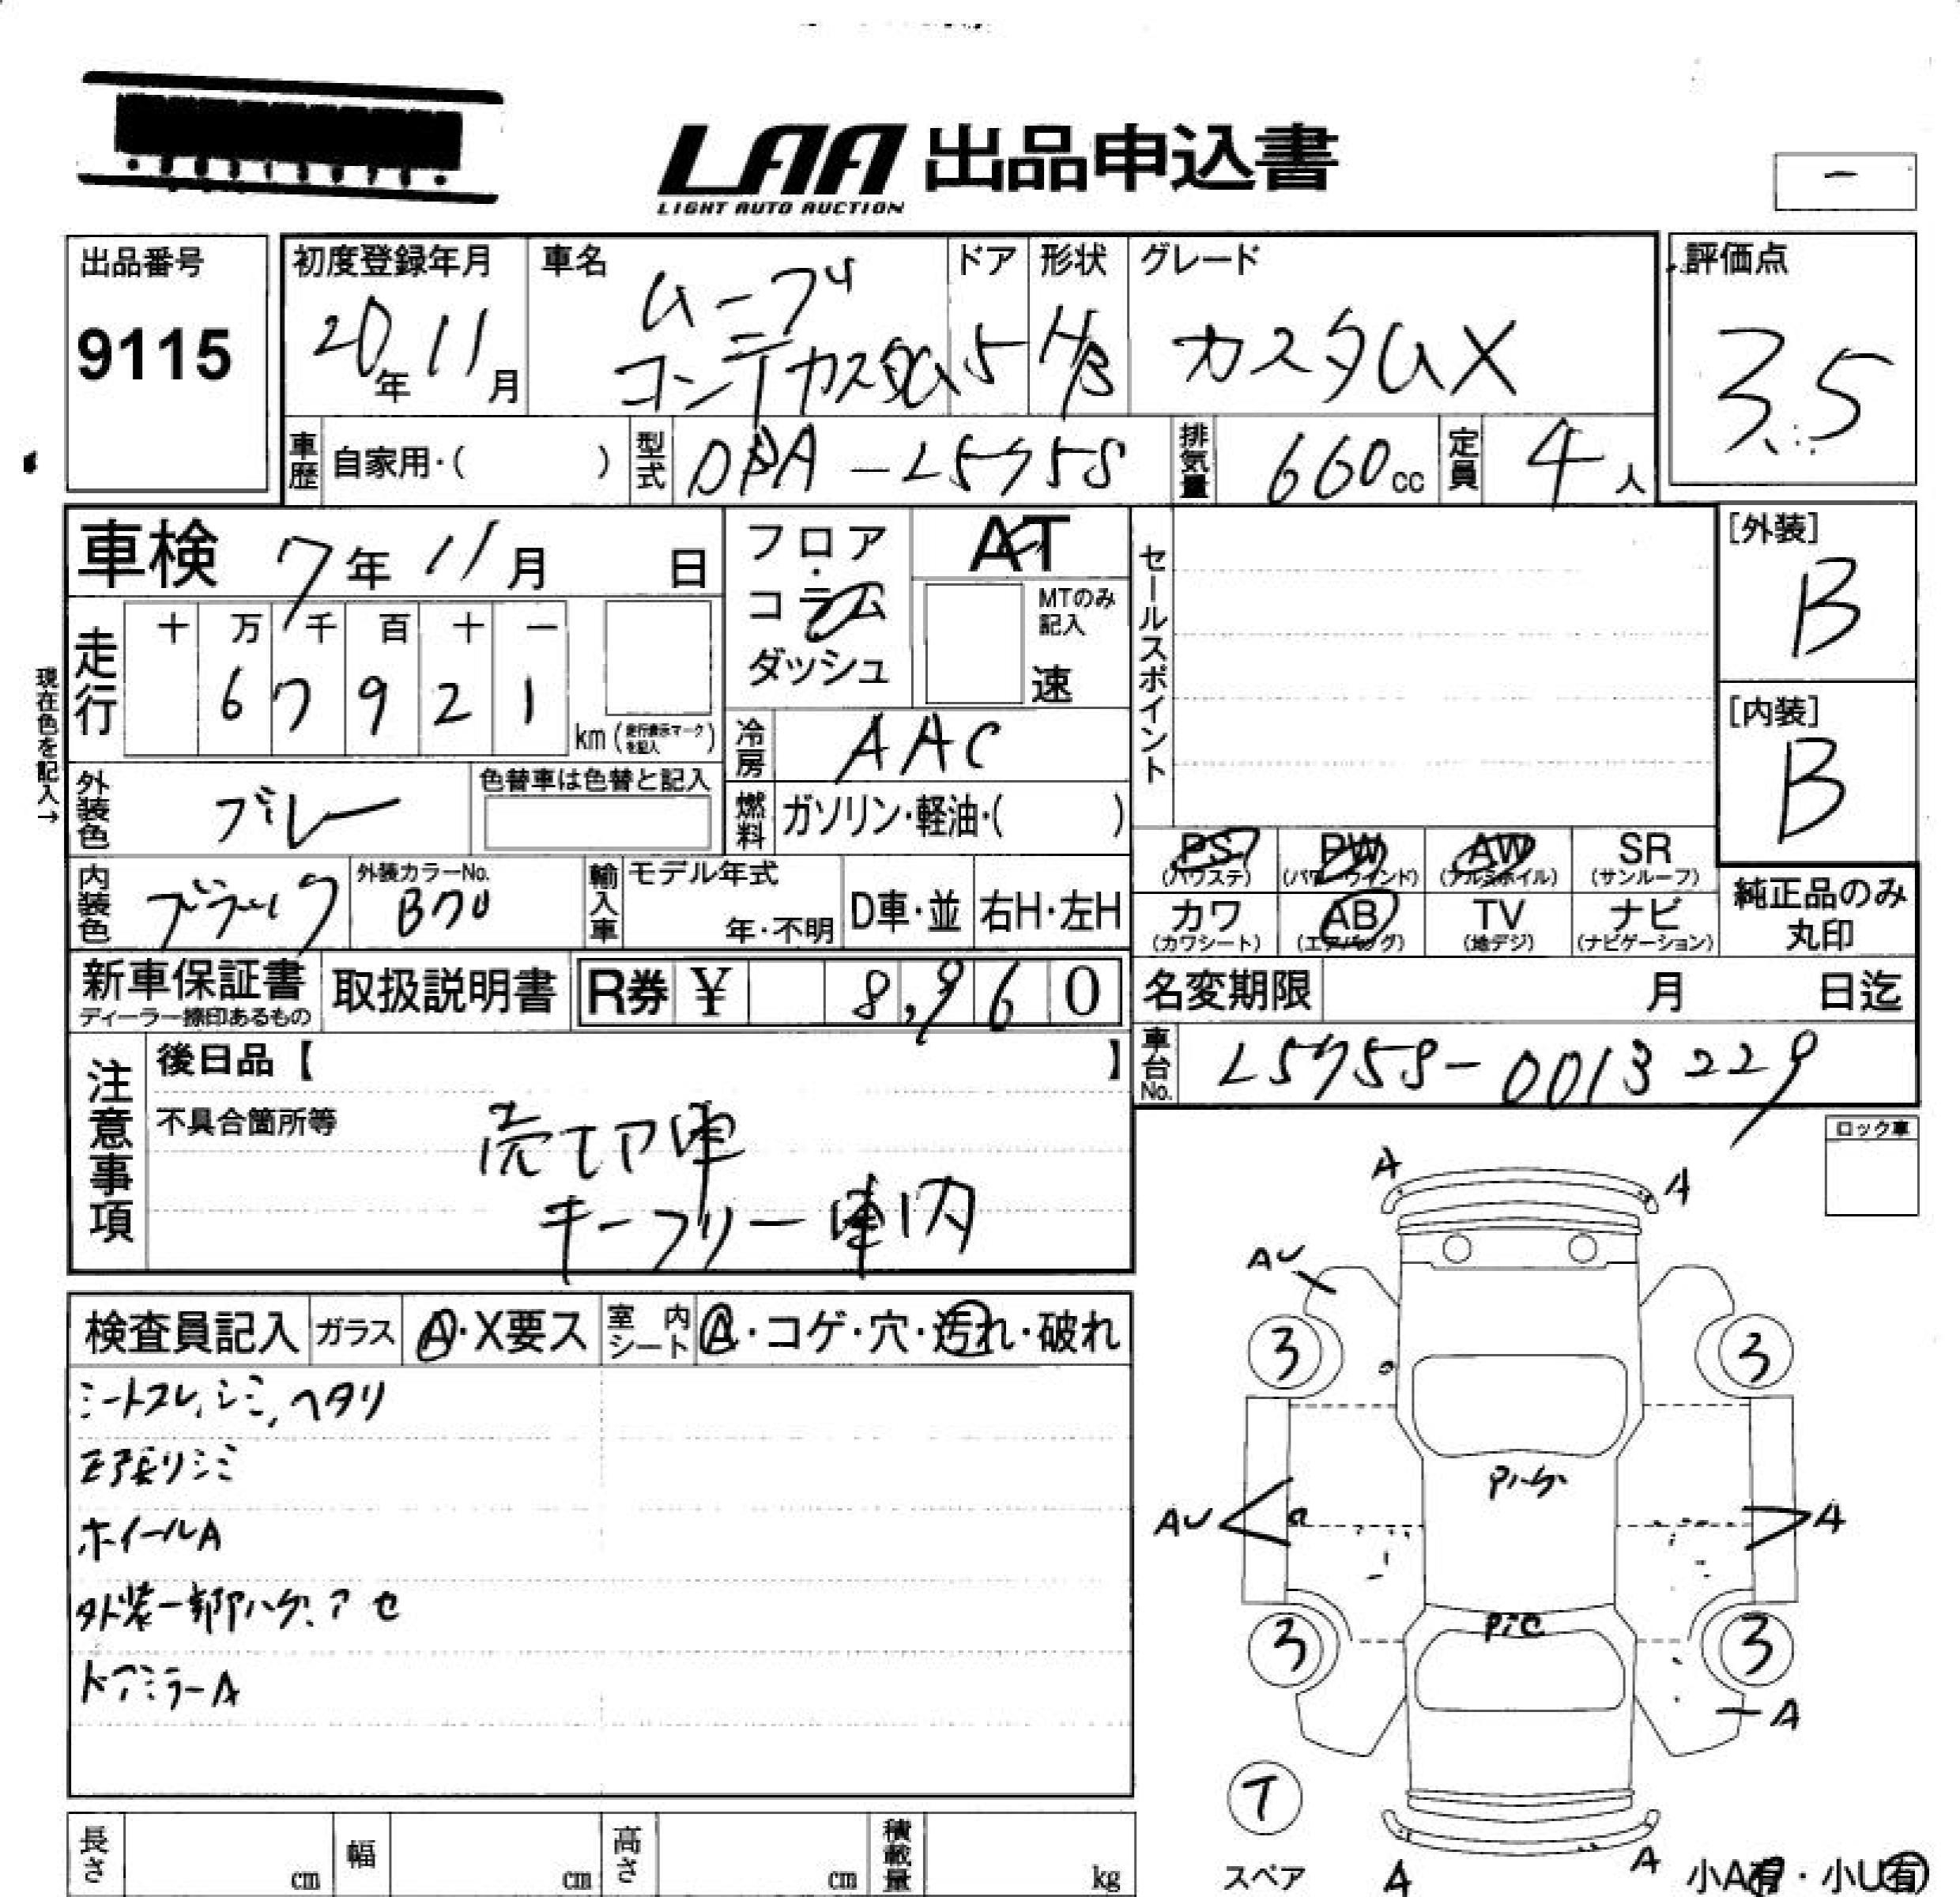 LAA 出品申込書
LIGHT AUTO AUCTION
ー
出品番号
9115
初度登録年月
20年 11月
車名
ムーブ
コンテカスタム
ドア
5
形状
H/B
グレード
カスタムX
評価点
3.5
車歴 自家用・( )
型式 DBA-L575S
排気量 660cc
定員 4人
車検 7年 11月 日
フロア・コラム
ダッシュ
AT
MTのみ記入
速
セールスポイント
[外装]
B
[内装]
B
現在色を記入→
走行
十 万 千 百 十 一
6 7 9 2 1
km (走行表示マークを記入)
冷房 AAC
外装色 ブルー
色替車は色替と記入
燃料 ガソリン・軽油・( )
PS (パワステ) PW (パワーウインド) AW (アルミホイル) SR (サンルーフ)
カワ (カワシート) AB (エアバッグ) TV (地デジ) ナビ (ナビゲーション)
純正品のみ
丸印
内装色 ブラック
外装カラーNo.
B70
輸入車 モデル年式
年・不明
D車・並 右H・左H
新車保証書
ディーラー捺印あるもの
取扱説明書
R券 ¥ 8,960
名変期限 月 日迄
車台No. L575S-0013229
注意事項
後日品【 】
不具合箇所等
売切車
キーフリー車内
ロック車
検査員記入 ガラス A・X要ス 室内シート A・コゲ・穴・汚れ・破れ
シートスレ、シミ、ヘタリ
ドア張りシミ
ホイールA
外装一部ハゲ、アセ
ドアミラーA
A
A
AU
3
3
ハゲ
AU
A
3
3
A
T
スペア
A
A
小A有・小U有
長さ cm
幅 cm
高さ cm
積載量 kg